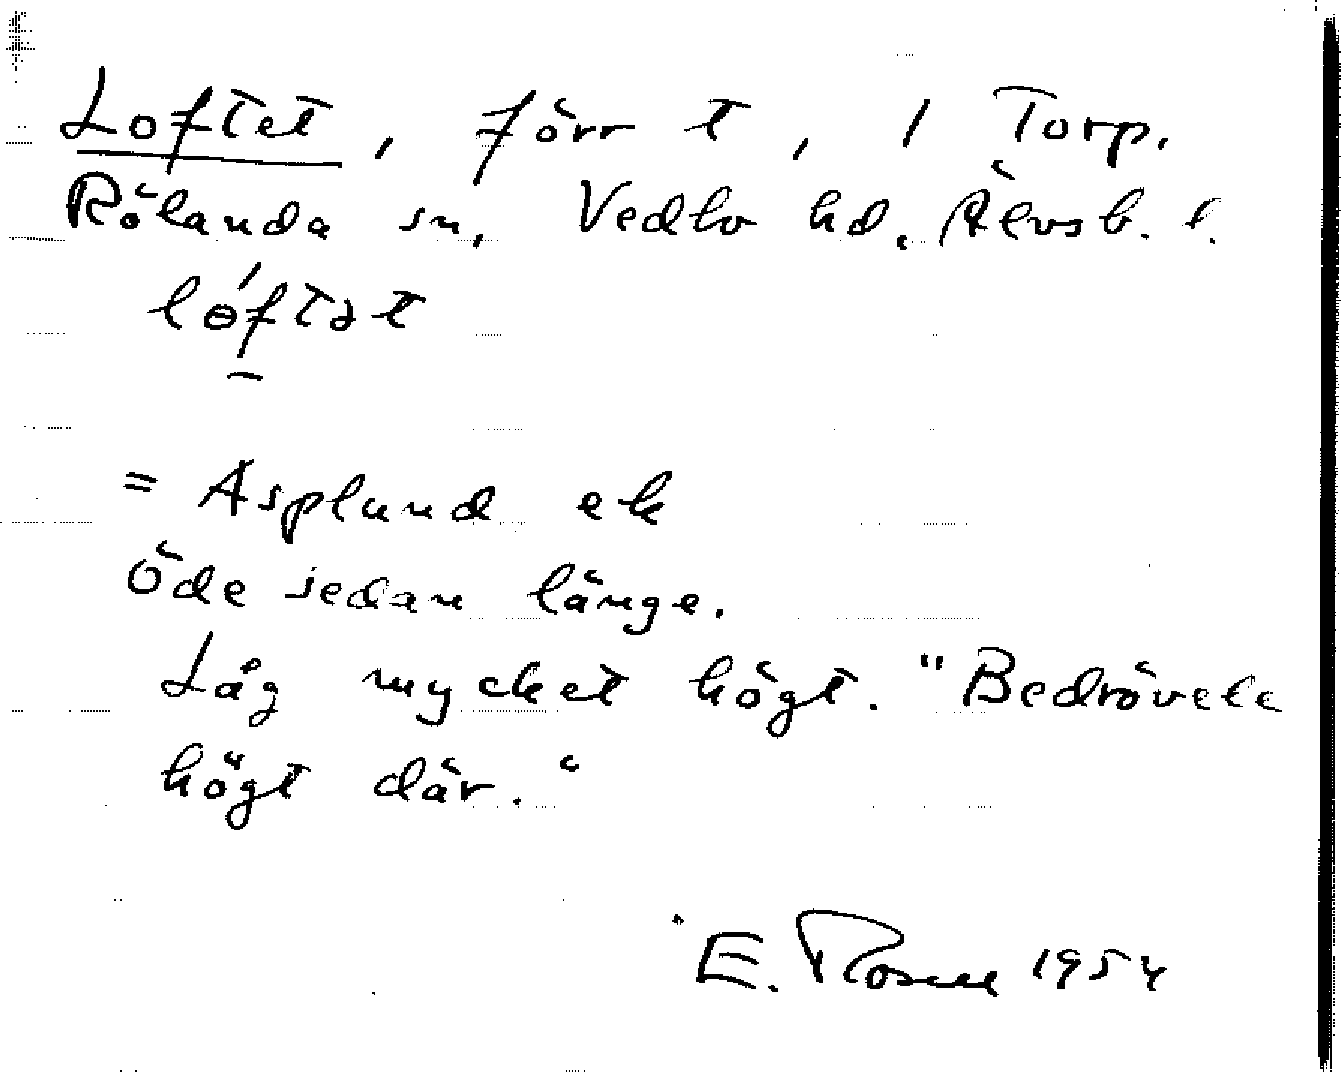 Loftet, förr t, 1 Torp.
Rölanda sn, Vedbo hd. Älvsb. l.
lɵ́ftət
= Asplund ek
Öde sedan länge.
Låg mycket högt. "Bedrövele
högt där."
E. Rosell 1954